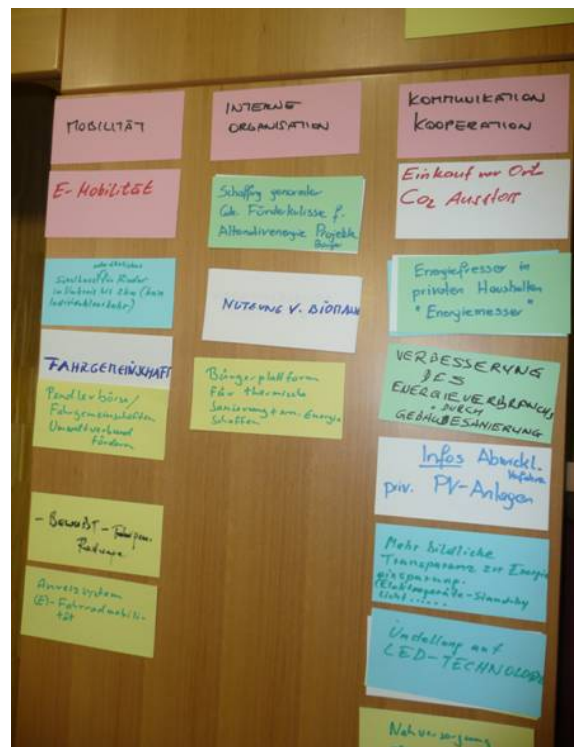 MOBILITÄT
E-Mobilität
im Umkreis bis 2km (kein
Individualverkehr)
FAHRGEMEINSCHAFT
Pendlerbörse/
Fahrgemeinschaften
Umweltverbund
fördern
- BEWUßT -
Radwege
Anreizsystem
(E)-Fahrradmobili-
tät
INTERNE
ORGANISATION
Schaffg generalar
Gde. Förderkulisse f.
Alternativenergie Projekte
Bürger
NUTZUNG V. BIOMASSE
Bürgerplattform
für thermische
Sanierung + ern. Energie
schaffen
KOMMUNIKATION
KOOPERATION
Einkauf vor Ort
CO2 Ausstoss
Energiefresser in
privaten Haushalten
"Energiemesser"
VERBESSERUNG
DES
ENERGIEVERBRAUCHS
DURCH
GEBÄUDESANIERUNG
Infos Abwickl.
Verfahren
priv. PV-Anlagen
Mehr bildliche
Transparenz zur Energie
einsparung.
(Elektrogeräte-Standby
Licht......
Umstellung auf
LED-TECHNOLOGIE
Nahversorgung